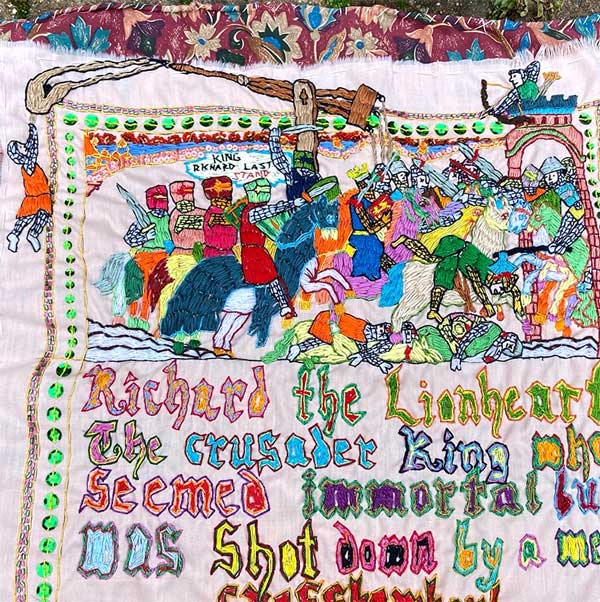 KING
RICHARD LAST
STAND
Richard the Lionheart
The crusader King who
Seemed immortal bu
was Shot down by a me